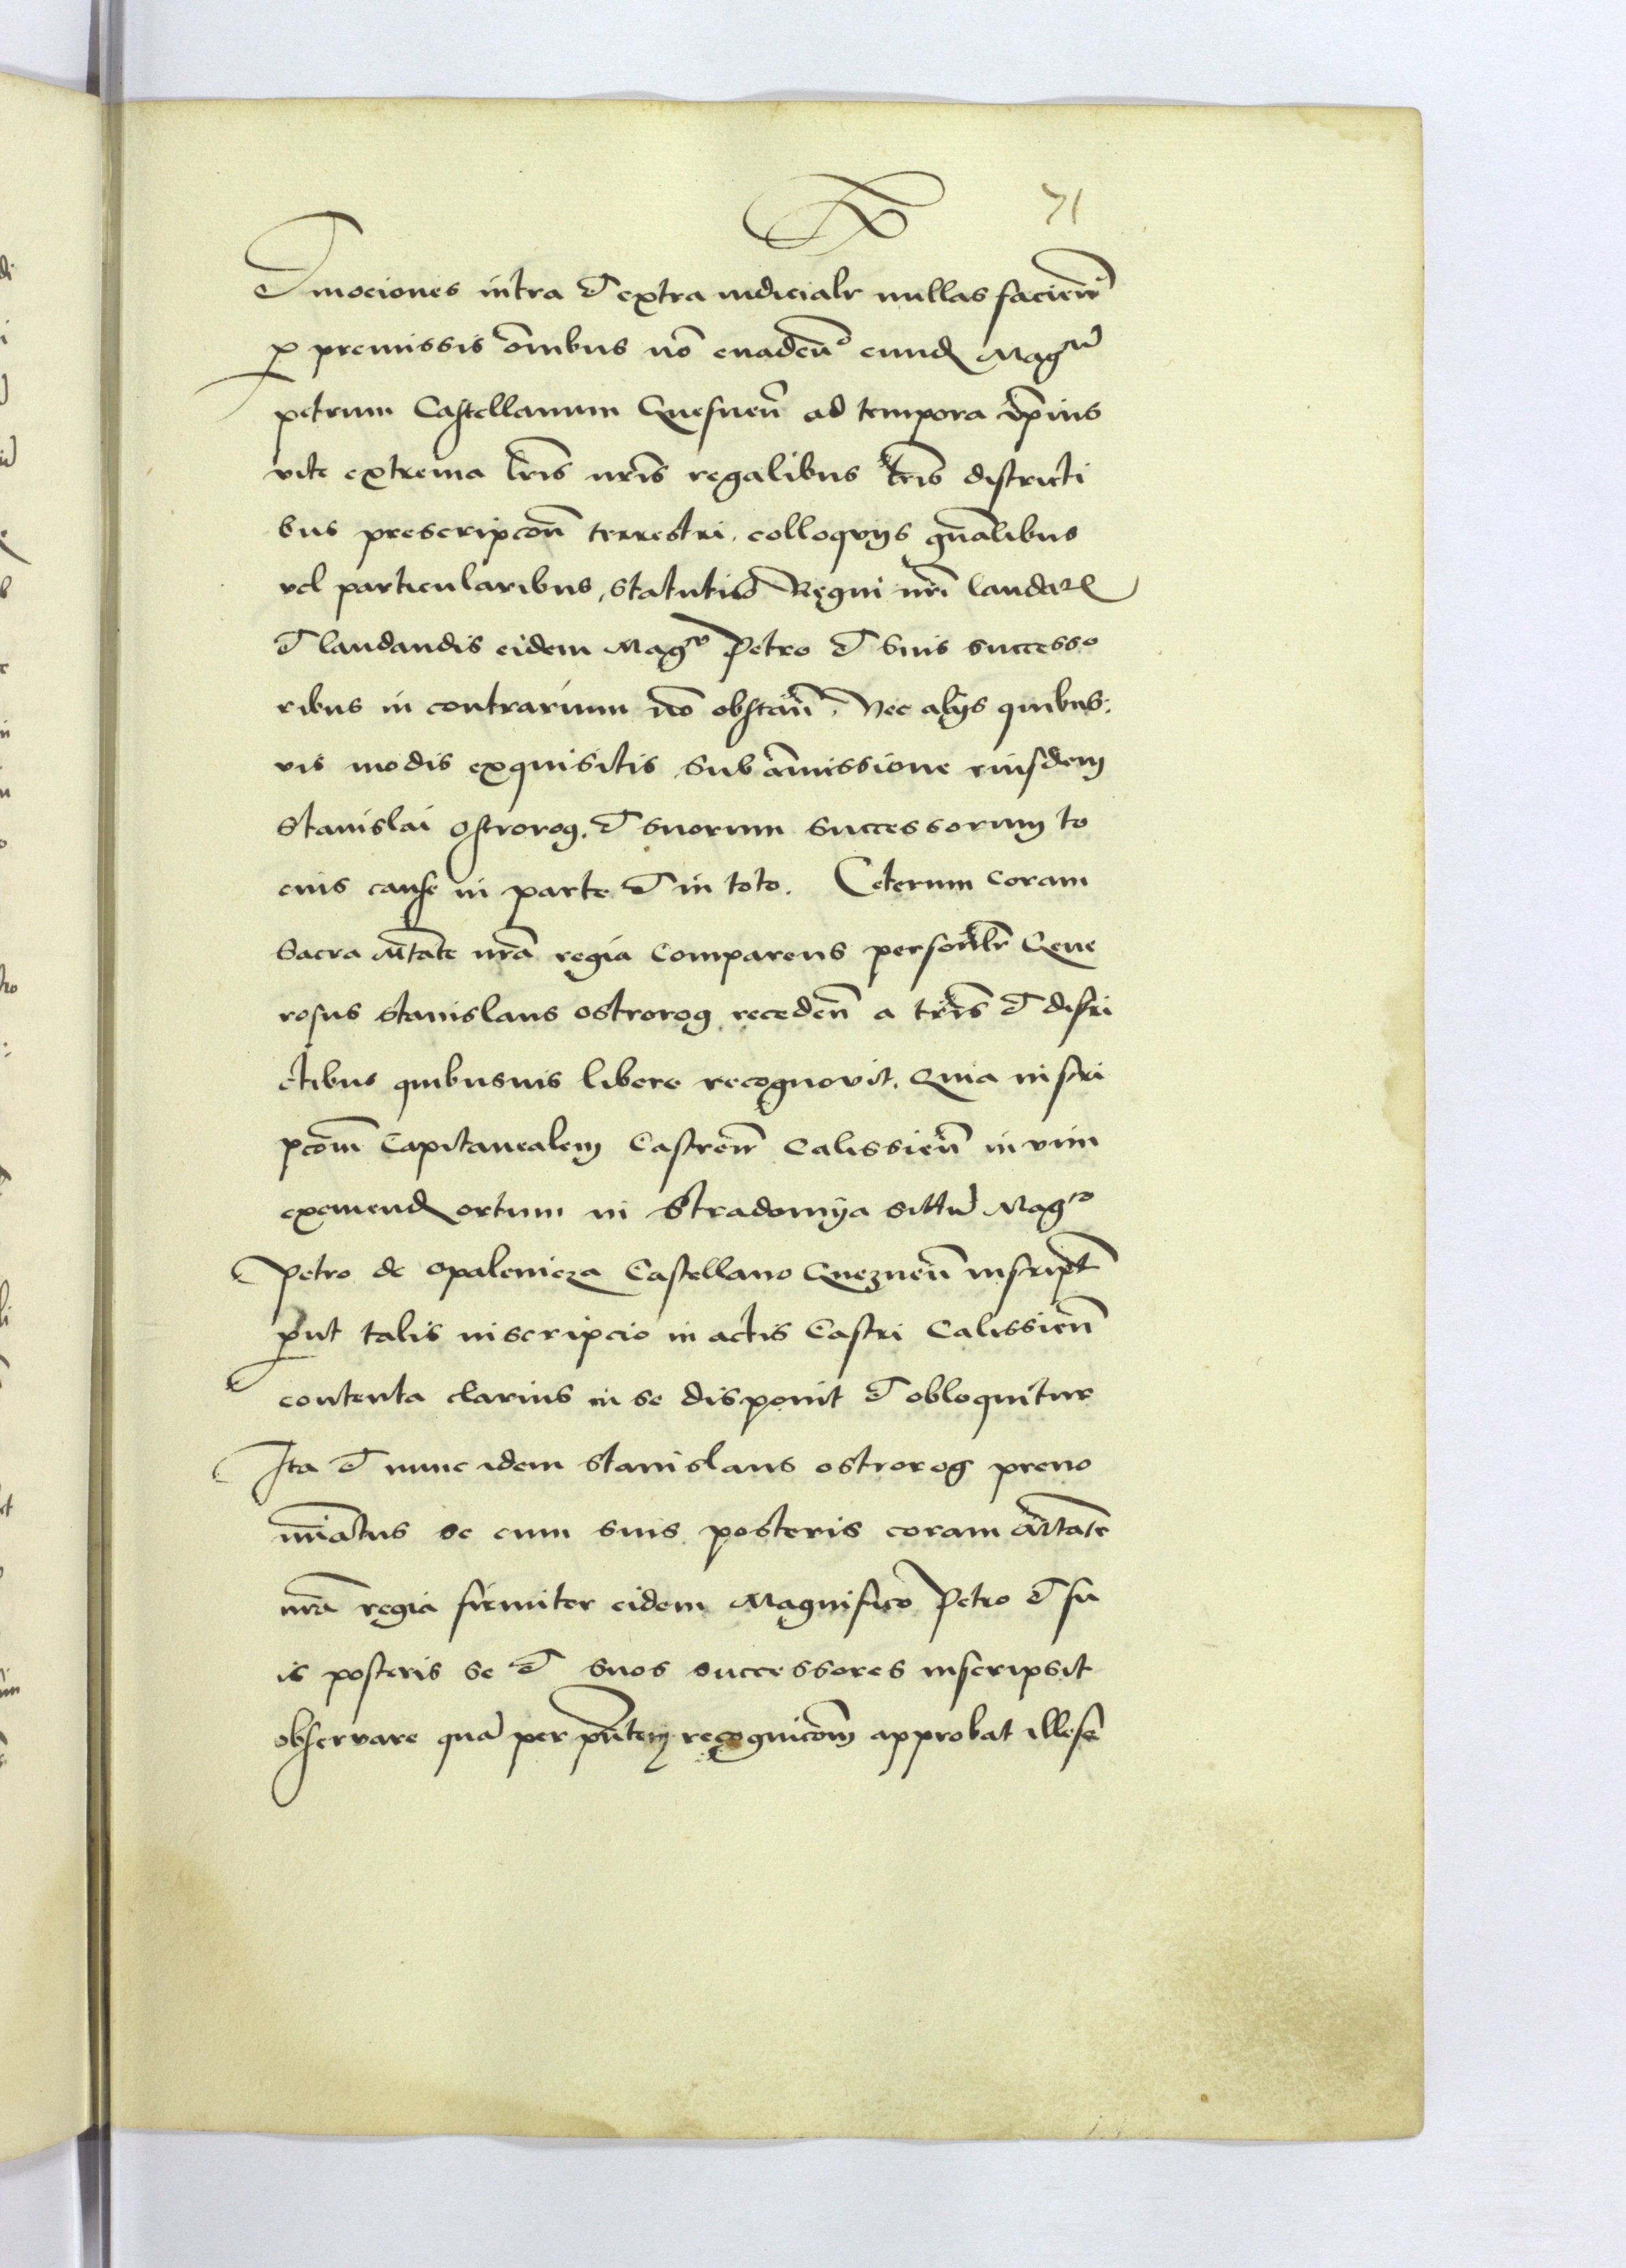 71
Et mociones intra et extra iudicialr nullas facien̄
p premissis om̄ibus nō euaden̄ eund Magcū
petrum Castellanum Gnesnen̄ ad tempora ip̄ius
vite extrema lr̄is nr̄is regalibus tr̄is districti
bus prescripcōn terrestri. colloquijs gn̄alibus
vel particularibus, statutis Regni nr̄i laudat
et laudandis eidem Magco Petro et suis successo
ribus in contrarium nō obstan̄. Nec alijs quibus:
vis modis exquisitis sub am̄issione eiusdem
Stanislai Ostrorog. et suorum successorum to
cius cause in parte et in toto. Ceterum coram
Sacra Mtāte nr̄a regia Comparens personlr̄ Gene
rosus Stanislaus Ostrorog receden̄ a tr̄is et distri
ctibus quibusuis libere recognovit. Quia inscri
pcōm Capitanealem Castren̄ Calissien̄ in vim
exemend ortum in Stradomya sittū Magco
Petro de Opalenicza Castellano Gneznen̄ inscript
put talis inscripcio in actis Castri Calissien̄
contenta clarius in se disponit et obloquitur
Ita et nunc idem Stanislaus Ostrorog preno
mīatus se cum suis posteris coram Mtāte
nr̄a regia firmiter eidem Magnifico Petro et su
is posteris se et suos successores inscripsit
observare quā per pn̄tem recognicōm approbat illese